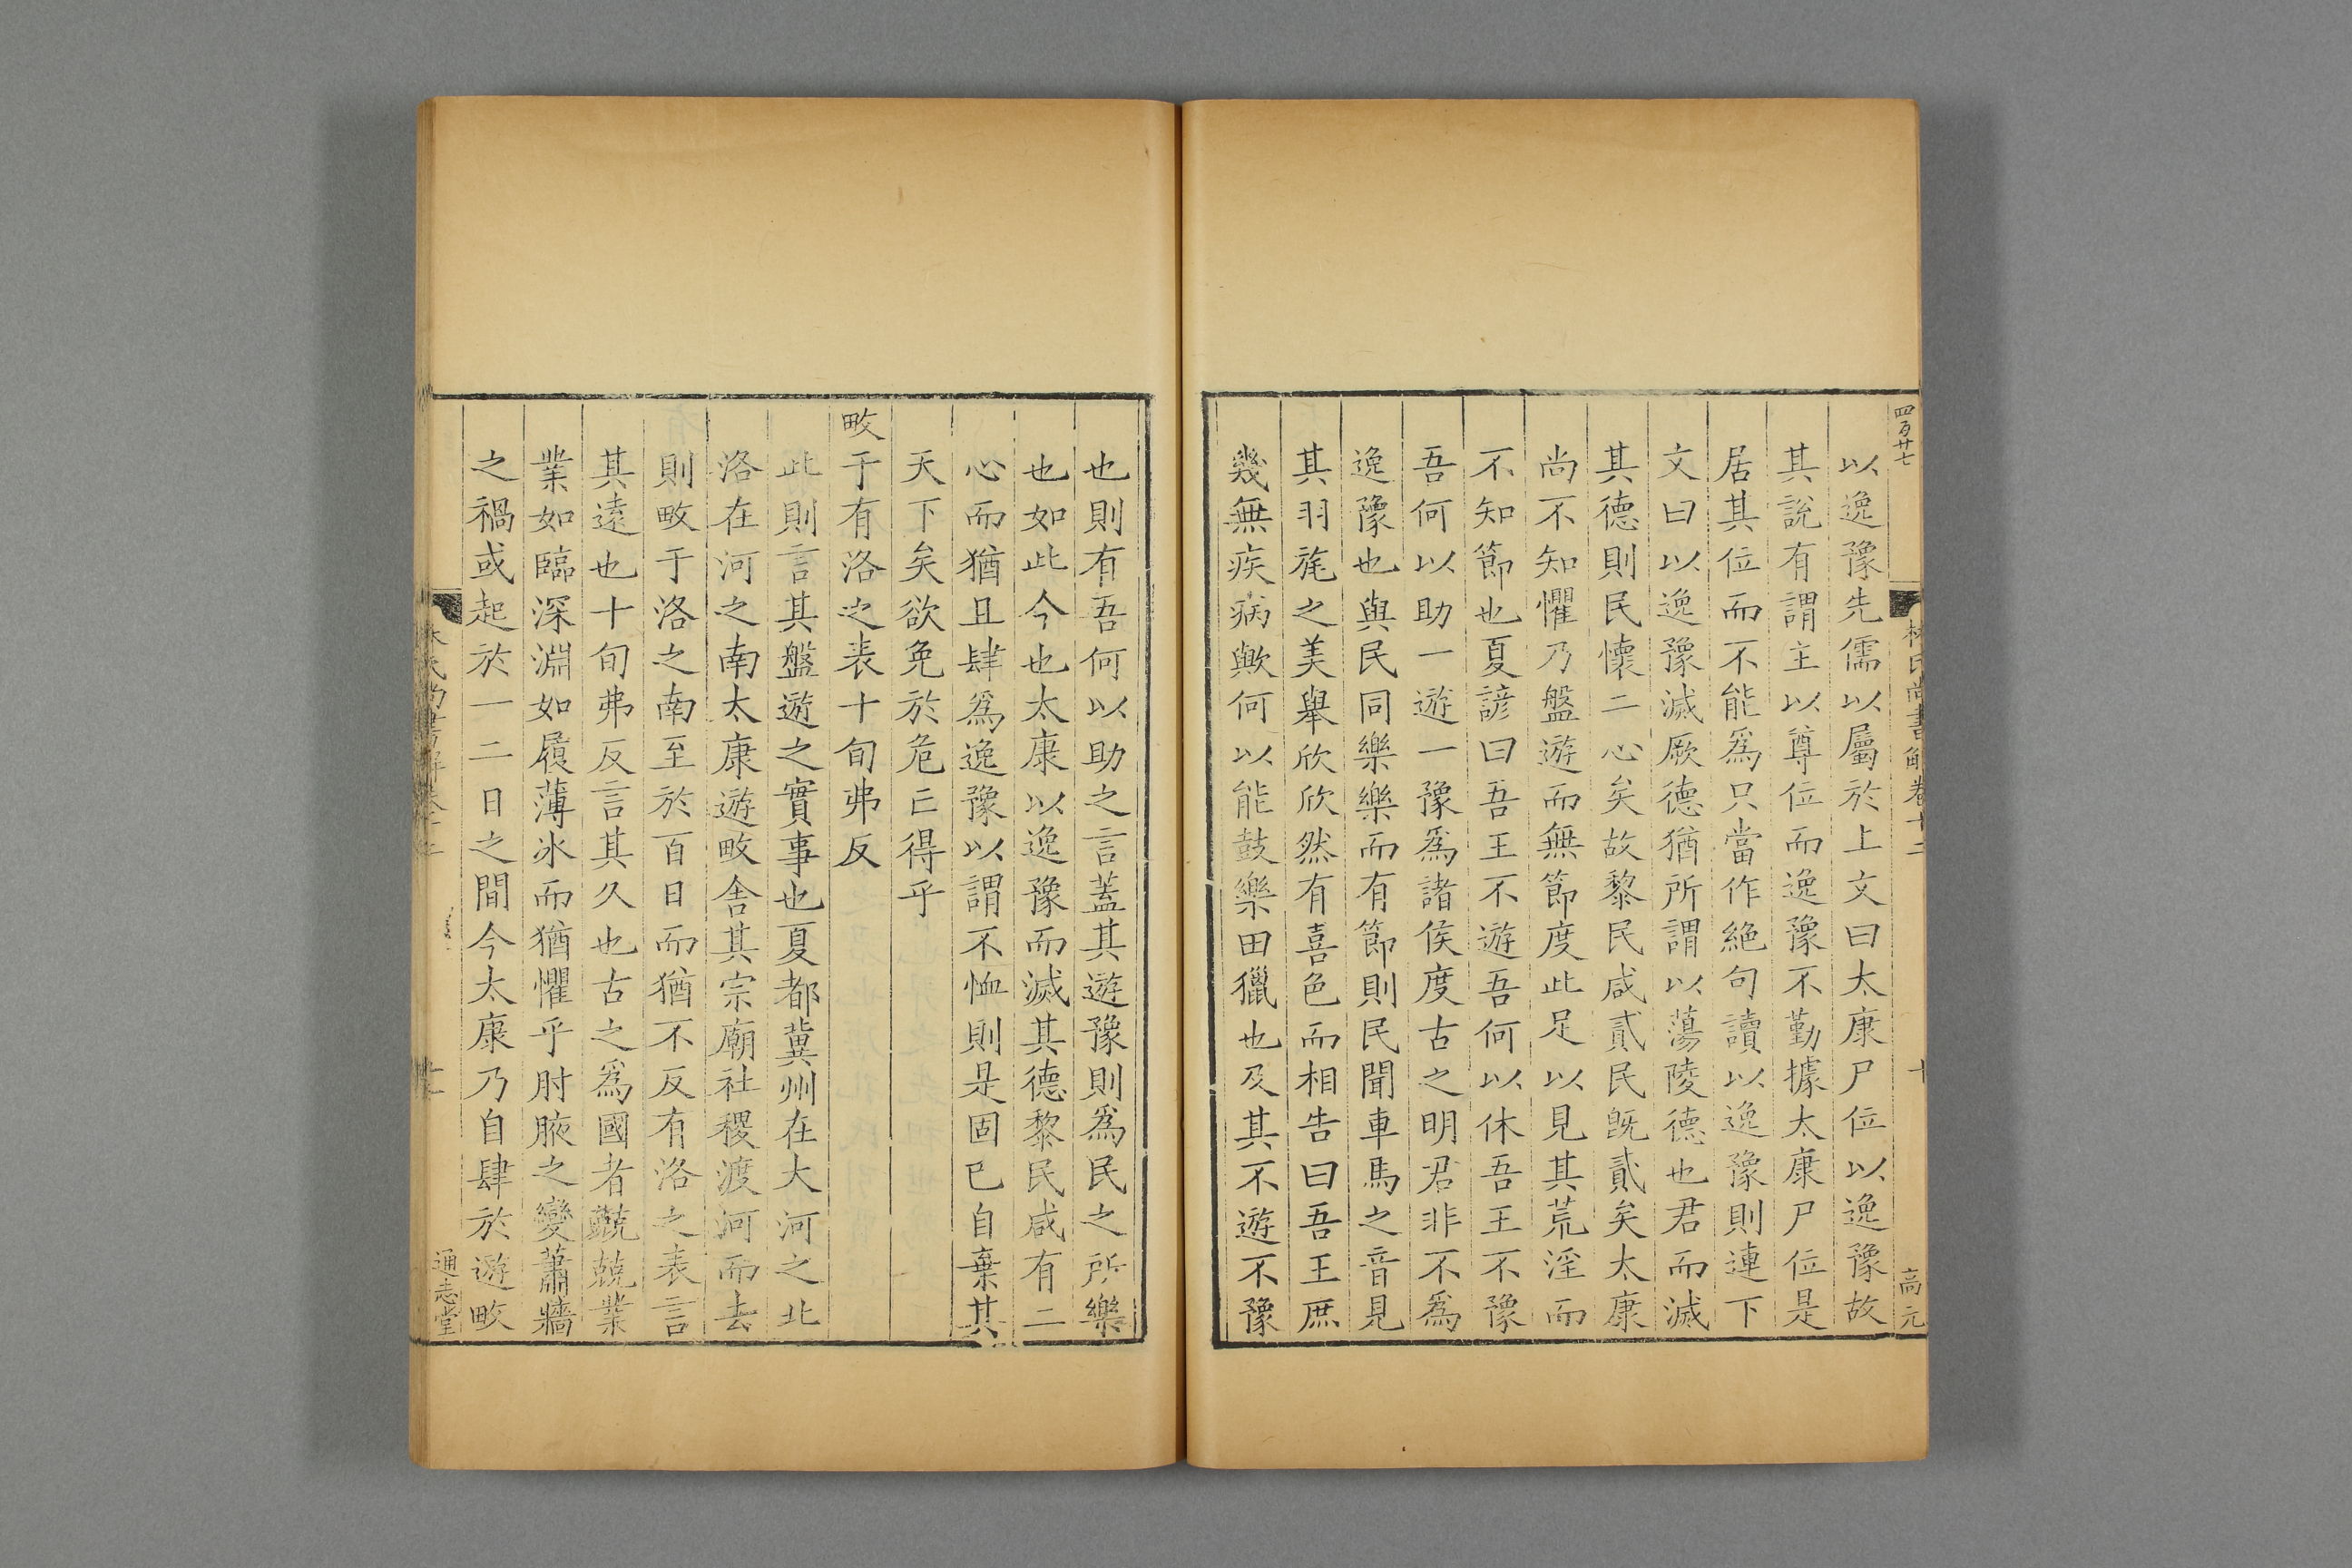 四百廿七
林氏尚書解卷十二
十
高元
以逸豫先儒以屬於上文曰太康尸位以逸豫故
其說有謂主以尊位而逸豫不勤據太康尸位是
居其位而不能爲只當作絶句讀以逸豫則連下
文曰以逸豫滅厥德猶所謂以蕩陵德也君而滅
其德則民懷二心矣故黎民咸貳民旣貳矣太康
尚不知懼乃盤遊而無節度此足以見其荒淫而
不知節也夏諺曰吾王不遊吾何以休吾王不豫
吾何以助一遊一豫爲諸侯度古之明君非不爲
逸豫也與民同樂樂而有節則民聞車馬之音見
其羽旄之美舉欣欣然有喜色而相告曰吾王庶
幾無疾病歟何以能鼓樂田獵也及其不遊不豫
也則有吾何以助之言蓋其遊豫則爲民之所樂
也如此今也太康以逸豫而滅其德黎民咸有二
心而猶且肆爲逸豫以謂不恤則是固已自棄其
天下矣欲免於危亡得乎
畋于有洛之表十旬弗反
此則言其盤遊之實事也夏都冀州在大河之北
洛在河之南太康遊畋舍其宗廟社稷渡河而去
則畋于洛之南至於百日而猶不反有洛之表言
其遠也十旬弗反言其久也古之爲國者兢兢業
業如臨深淵如履薄冰而猶懼乎肘腋之變蕭牆
之禍或起於一二日之間今太康乃自肆於遊畋
林氏尚書解卷十二
通志堂